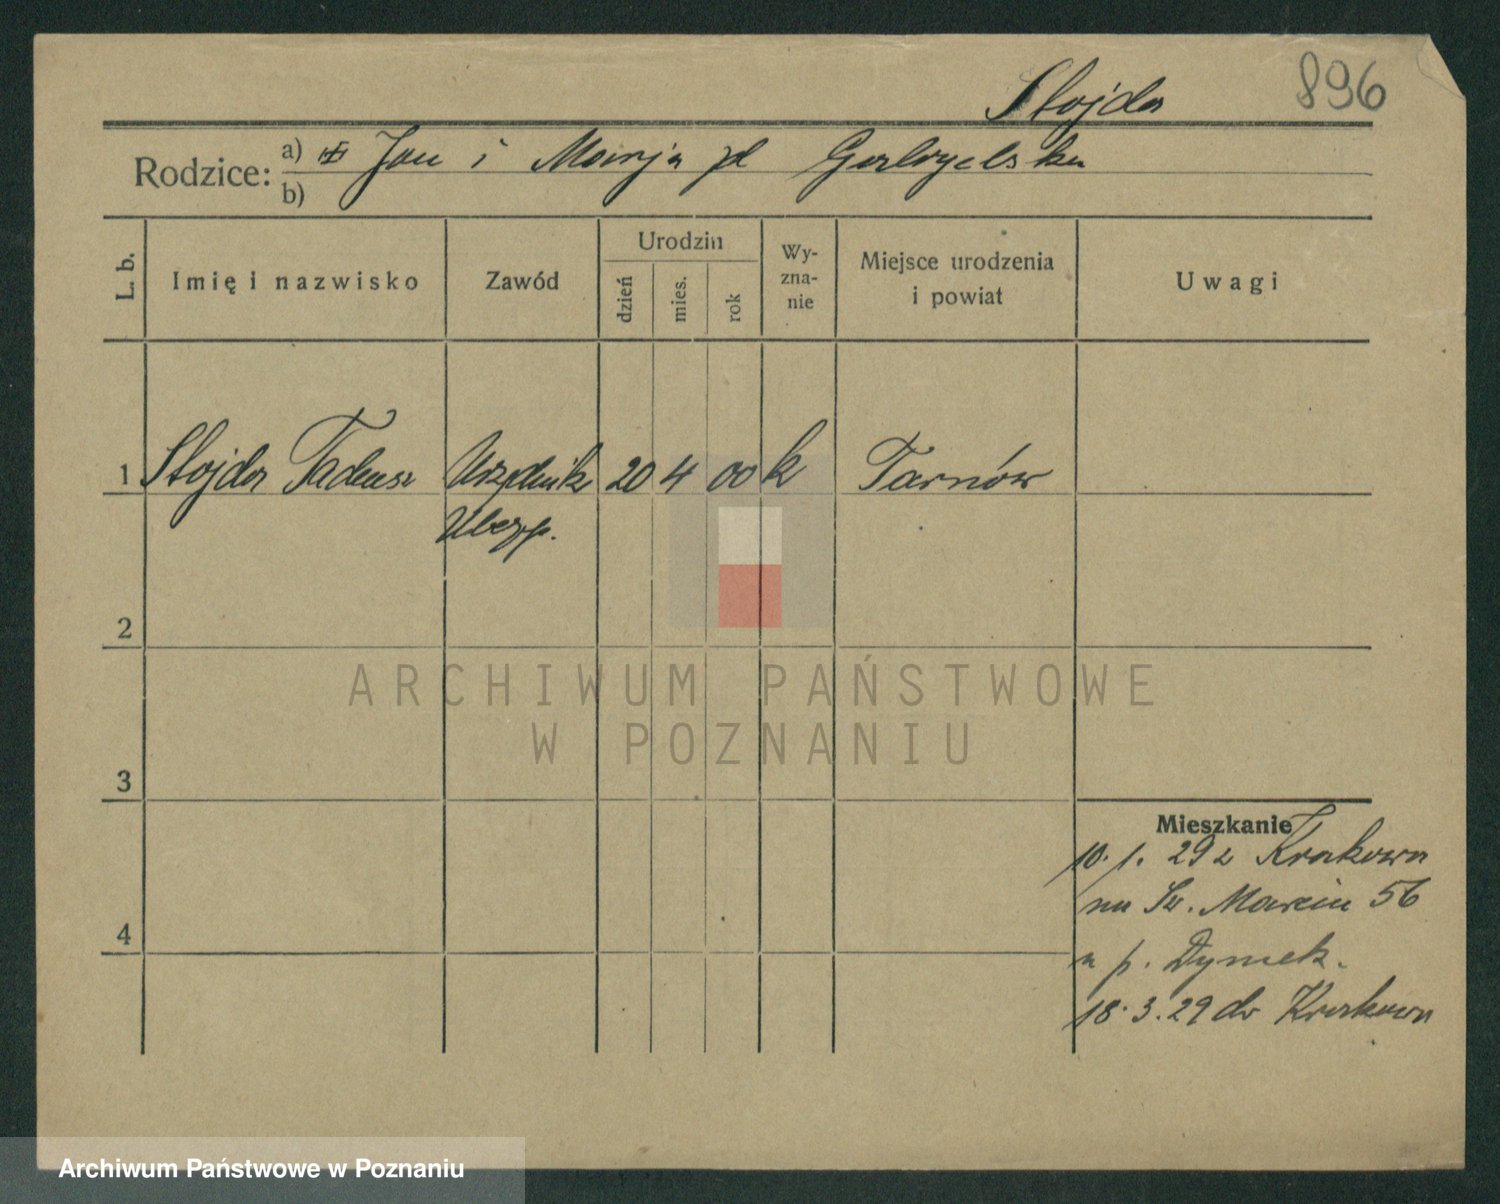 Stojda 896
Rodzice: a) Jan i Marja zd
b)
L. b. Imię i nazwisko Zawód Urodzin dzień mies. rok Wyznanie Miejsce urodzenia i powiat Uwagi
1 Stojda Tadeusz Urzędnik 20 4 00 k Tarnów
Ubezp.
2
ARCHIWUM PAŃSTWOWE
W POZNANIU
3
Mieszkanie
10. 1. 29 z Krakowa
na Św. Marcin 56
u p. Dymek.
4
18. 3. 29 do Krakowa
Archiwum Państwowe w Poznaniu